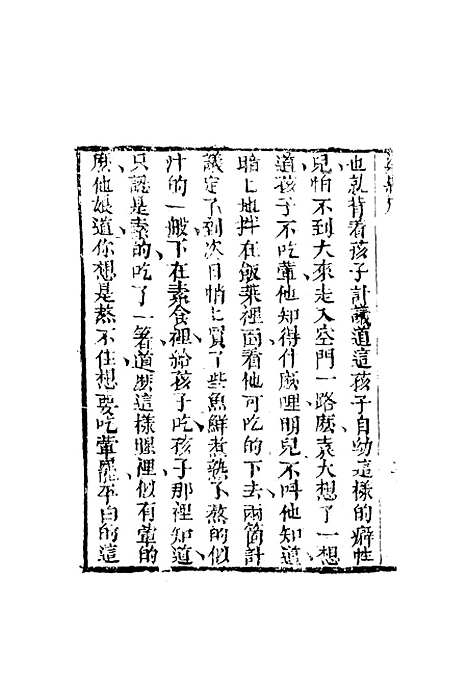 也就背着孩子計議道這孩子自幼這樣的癖性
兒怕不到大來走入空門一路麼袁大想了一想
道孩子不吃葷他知得什麼哩明兒不叫他知道
暗上地拌在飯菜裡面看他可吃的下去兩箇計
議定了到次日悄上買了些魚鮮煮熟了熬的似
汁的一般下在素食裡給孩子吃孩子那裡知道
只認是素的吃了一箸道麼這樣腥裡似有葷的
麼他娘道你想是熬不住想要吃葷罷平白的這